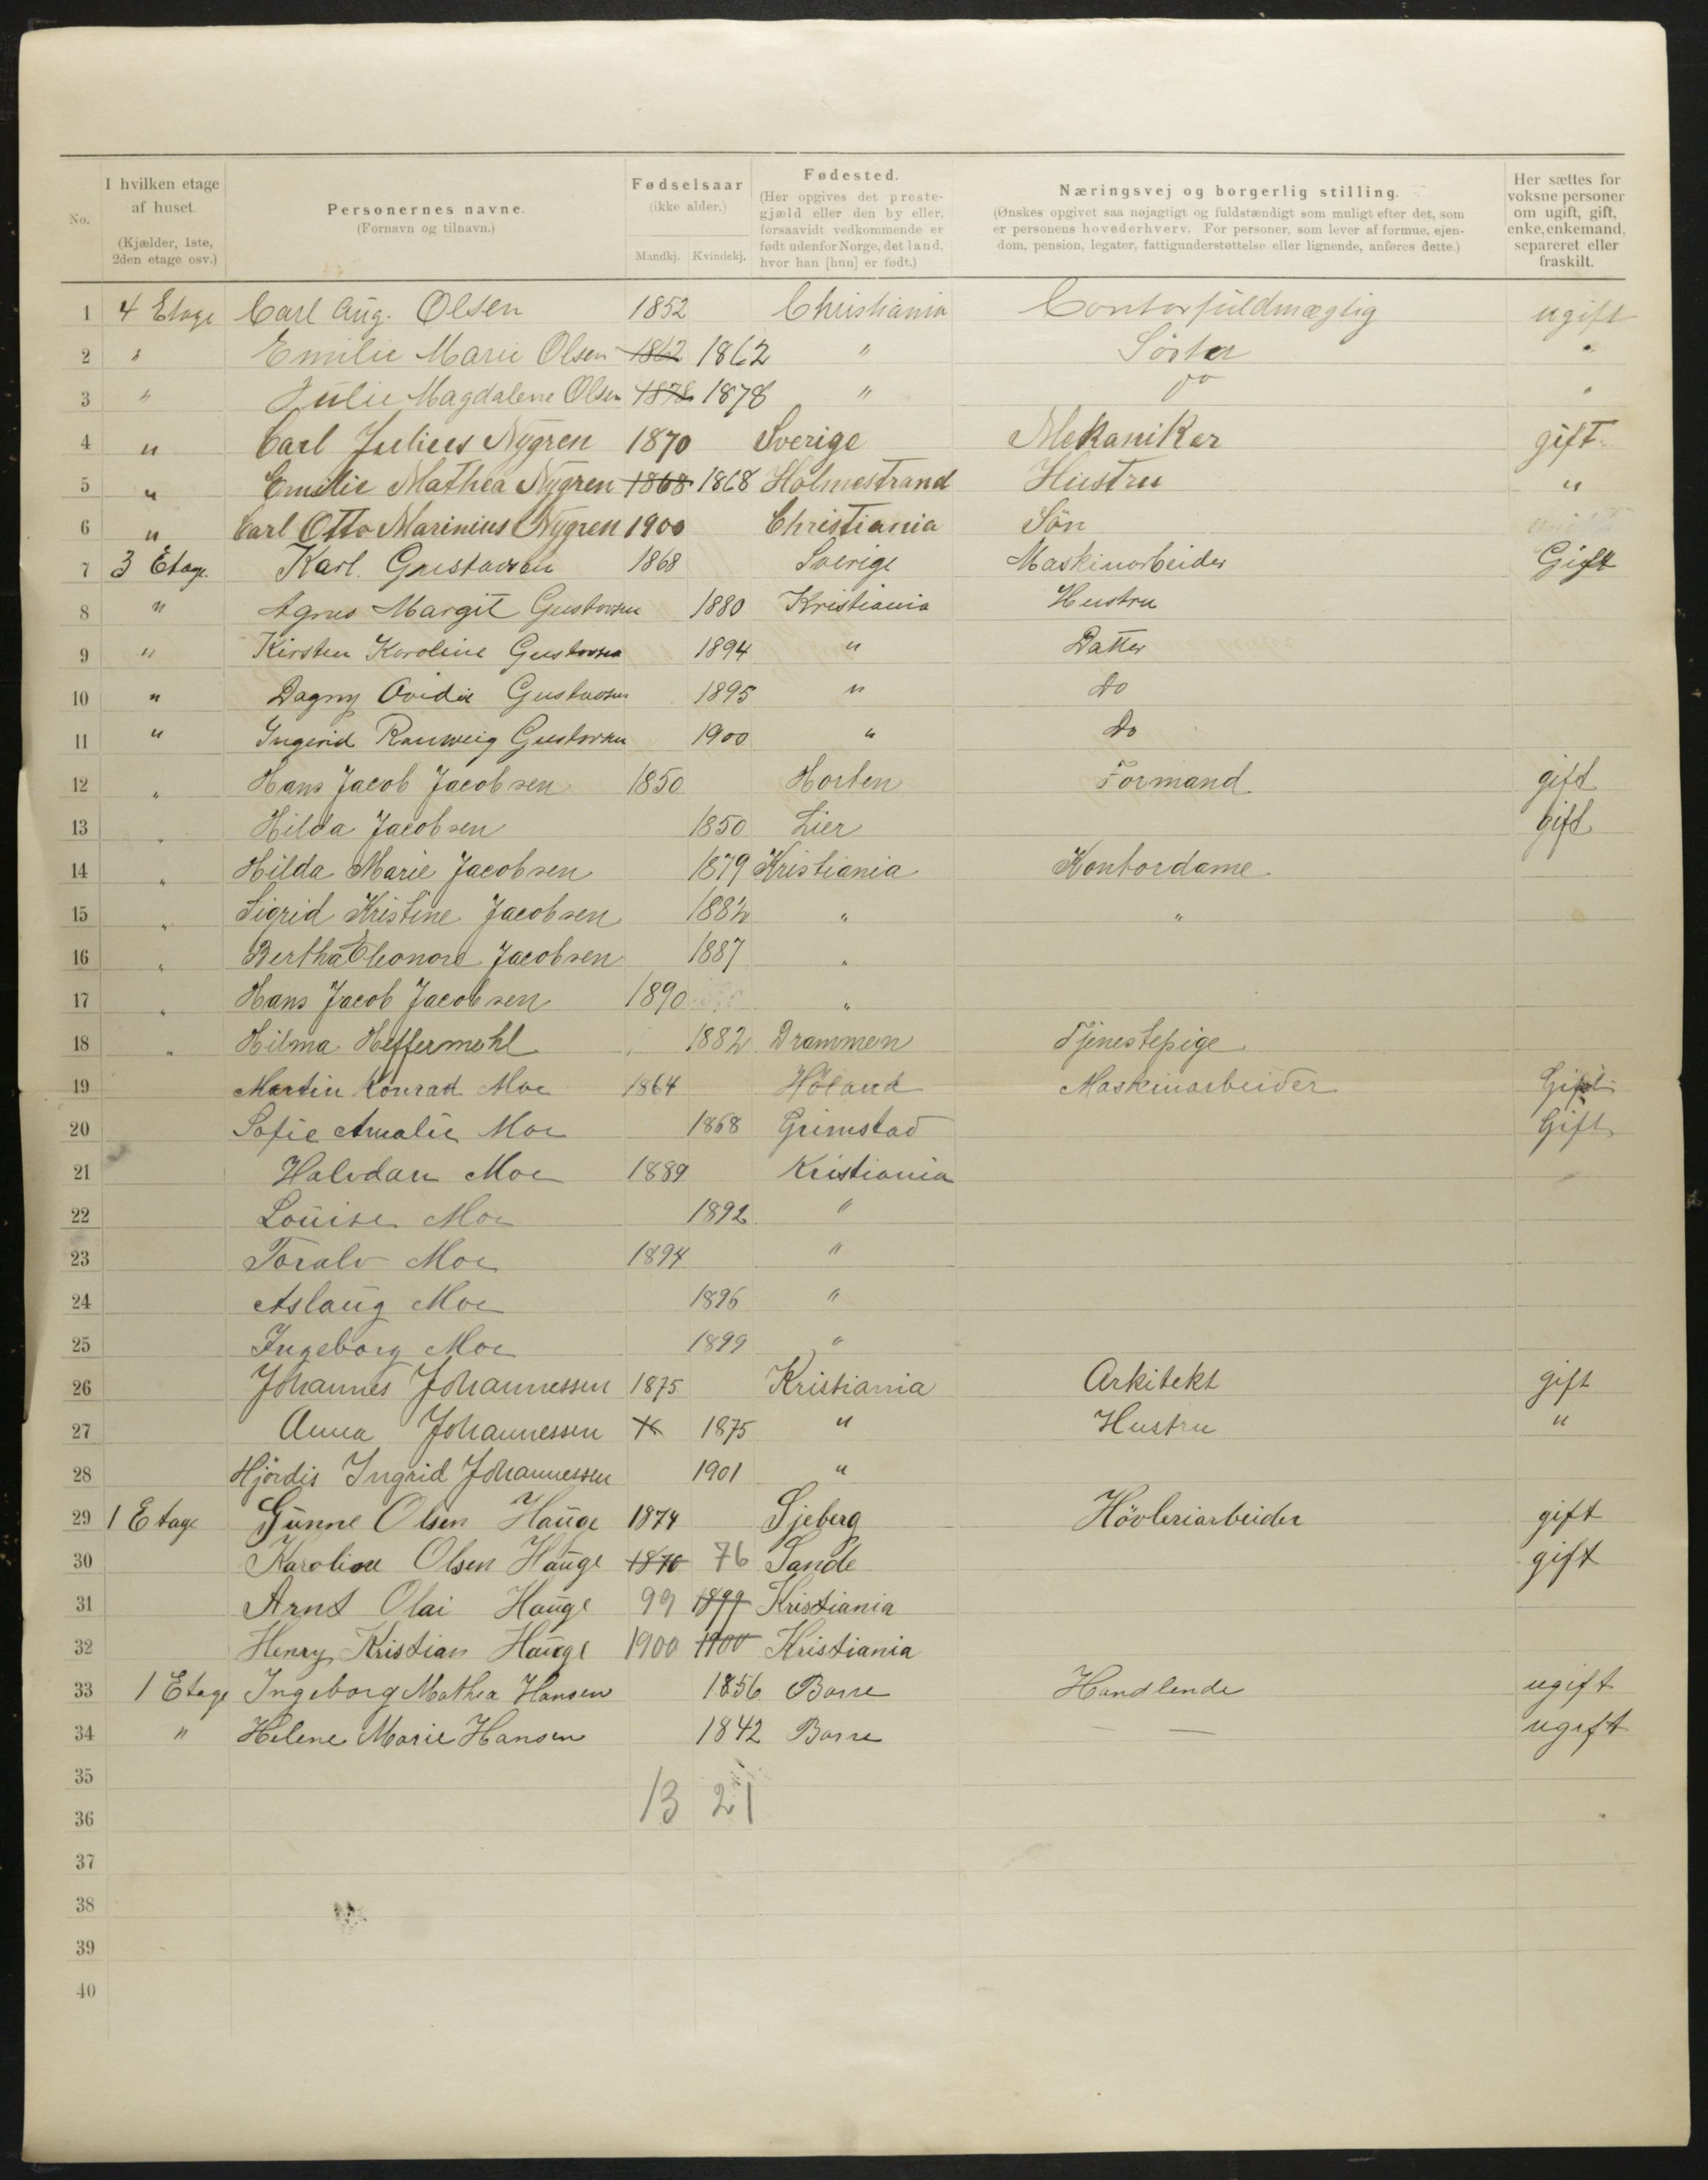 No. I hvilken etage af huset. (Kjælder, 1ste, 2den etage osv.) Personernes navne. (Fornavn og tilnavn.) Fødselsaar (ikke alder.) Mandkj. Kvindekj. Fødested. (Her opgives det prestegjæld eller den by eller, forsaavidt vedkommende er født udenfor Norge, det land, hvor han [hun] er født.) Næringsvej og borgerlig stilling. (Ønskes opgivet saa nøjagtigt og fuldstændigt som muligt efter det, som er personens hovederhverv. For personer, som lever af formue, ejendom, pension, legater, fattigunderstøttelse eller lignende, anføres dette.) Her sættes for voksne personer om ugift, gift, enke, enkemand, separeret eller fraskilt.
1 4 Etage Carl Aug. Olsen 1852 Christiania Contorfuldmægtig ugift
2 " Emilie Marie Olsen 1862 1862 " Søster "
3 " Julie Magdalene Olsen 1878 1878 " do "
4 " Carl Julius Nygren 1870 Sverige Mekaniker gift
5 " Emilie Mathea Nygren 1868 1868 Holmestrand Hustru "
6 " Carl Otto Marinius Nygren 1900 Christiania Søn
7 3 Etage Karl. Gustavsen 1868 Sverige Maskinarbeider Gift
8 " Agnes Margit Gustavsen 1880 Kristiania Hustru
9 " Kirsten Karoline Gustavsen 1894 " Datter
10 " Dagny Ovidie Gustavsen 1895 " Do
11 " Ingerid Ranweig Gustavsen 1900 " Do
12 " Hans Jacob Jacobsen 1850 Horten Formand gift
13 " Hilda Jacobsen 1850 Lier gift
14 " Hilda Marie Jacobsen 1879 Kristiania Kontordame
15 " Sigrid Kristine Jacobsen 1882 " "
16 " Bertha Eleonore Jacobsen 1887 "
17 " Hans Jacob Jacobsen 1890 "
18 " Hilma Heffermehl 1882 Drammen Tjenestepige
19 Martin Konrad Moe 1864 Høland Maskinarbeider Gift
20 Sofie Amalie Moe 1868 Grimstad Gift
21 Halvdan Moe 1889 Kristiania
22 Louise Moe 1892 "
23 Toralv Moe 1894 "
24 Aslaug Moe 1896 "
25 Ingeborg Moe 1899 "
26 Johannes Johannessen 1875 Kristiania Arkitekt gift
27 Anna Johannessen 1875 " Hustru "
28 Hjördis Ingrid Johannessen 1901 "
29 1 Etage Gunne Olsen Hauge 1874 Sjeberg Hövleriarbeider gift
30 Karoline Olsen Hauge 1876 76 Sande gift
31 Arnt Olai Hauge 99 1899 Kristiania
32 Henry Kristian Hauge 1900 1900 Kristiania
33 1 Etage Ingeborg Mathea Hansen 1856 Borre Handlende ugift
34 " Helene Marie Hansen 1842 Borre — — ugift
35
36 13 21
37
38
39
40